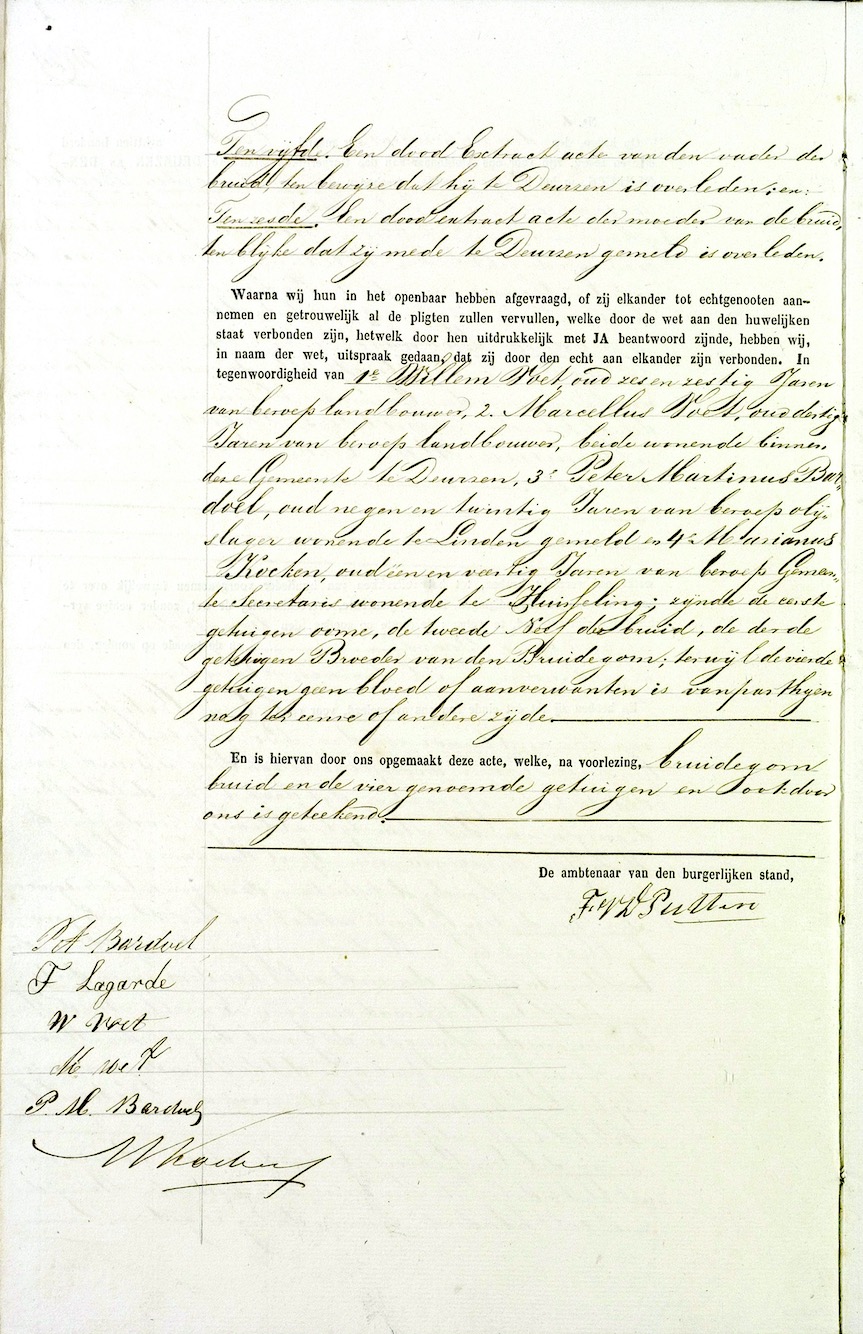 Ten vijfde. Een dood Extract acte van den vader der
bruid, ten bewijze dat hij te Deursen is overleden; en:
Ten zesde. Een dood extract acte der moeder van de bruid,
ten blijke dat zij mede te Deursen gemeld is overleden.
Waarna wij hun in het openbaar hebben afgevraagd, of zij elkander tot echtgenooten aan-
nemen en getrouwelijk al de pligten zullen vervullen, welke door de wet aan den huwelijken
staat verbonden zijn, hetwelk door hen uitdrukkelijk met JA beantwoord zijnde, hebben wij,
in naam der wet, uitspraak gedaan, dat zij door den echt aan elkander zijn verbonden. In
tegenwoordigheid van 1e Willem Voet, oud zes en zestig Jaren
van beroep landbouwer, 2. Marcellus Voet, oud dertig
Jaren van beroep landbouwer, beide wonende binnen
deze Gemeente te Deursen, 3e Peter Martinus Bar-
doel, oud negen en twintig Jaren van beroep olij-
slager wonende te Linden gemeld en 4e Marianus
Kocken, oud één en veertig Jaren van beroep Gemeen-
te Secretaris wonende te Huisseling; zijnde de eerste
getuigen oome, de tweede Neef der bruid, de derde
getuigen Broeder van den Bruidegom; terwijl de vierde
getuigen geen bloed of aanverwanten is van parthijen
nog ter eenre of andere zijde.
En is hiervan door ons opgemaakt deze acte, welke, na voorlezing, bruidegom
bruid en de vier genoemde getuigen en ook door
ons is geteekend.
De ambtenaar van den burgerlijken stand,
F. V D Putten
P A Bardoel
F Lagarde
W Voet
M. voet
P. M. Bardoel
M Kocken